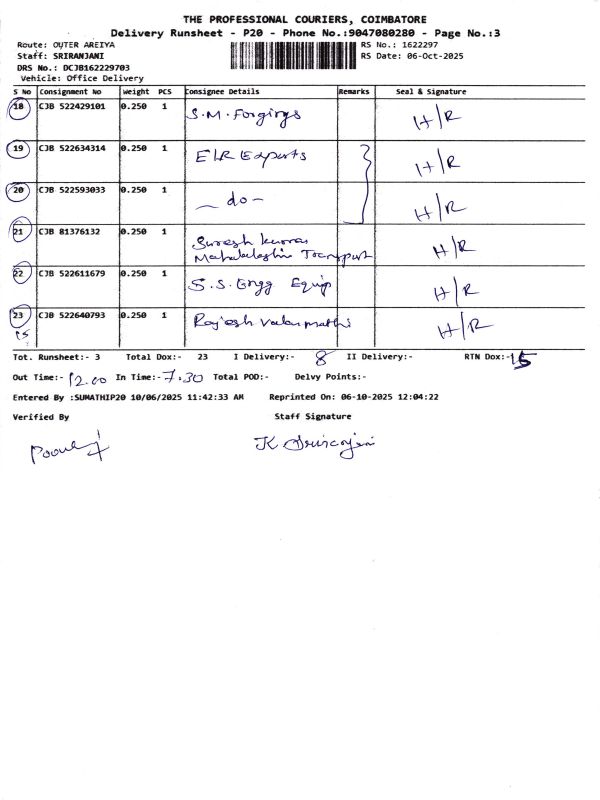 THE PROFESSIONAL COURIERS, COIMBATORE
Delivery Runsheet - P20 - Phone No.:9047080280 - Page No.:3
Route: OUTER AREIYA
RS No.: 1622297
Staff: SRIRANJANI
RS Date: 06-Oct-2025
DRS No.: DCJB162229703
Vehicle: Office Delivery
S No Consignment No Weight PCS Consignee Details Remarks Seal & Signature
18 CJB 522429101 0.250 1 S.M. Forgings H/R
19 CJB 522634314 0.250 1 ELR Exports H/R
20 CJB 522593033 0.250 1 - do - H/R
21 CJB 81376132 0.250 1 Suresh kumar H/R
Mahalakshmi Transport
22 CJB 522611679 0.250 1 S.S. Engg Equip H/R
23 CJB 522640793 0.250 1 Rajesh Valarmathi H/R
Tot. Runsheet:- 3 Total Dox:- 23 I Delivery:- 8 II Delivery:- RTN Dox:- 15
Out Time:- 12.00 In Time:- 7.30 Total POD:- Delvy Points:-
Entered By :SUMATHIP20 10/06/2025 11:42:33 AM Reprinted On: 06-10-2025 12:04:22
Verified By Staff Signature